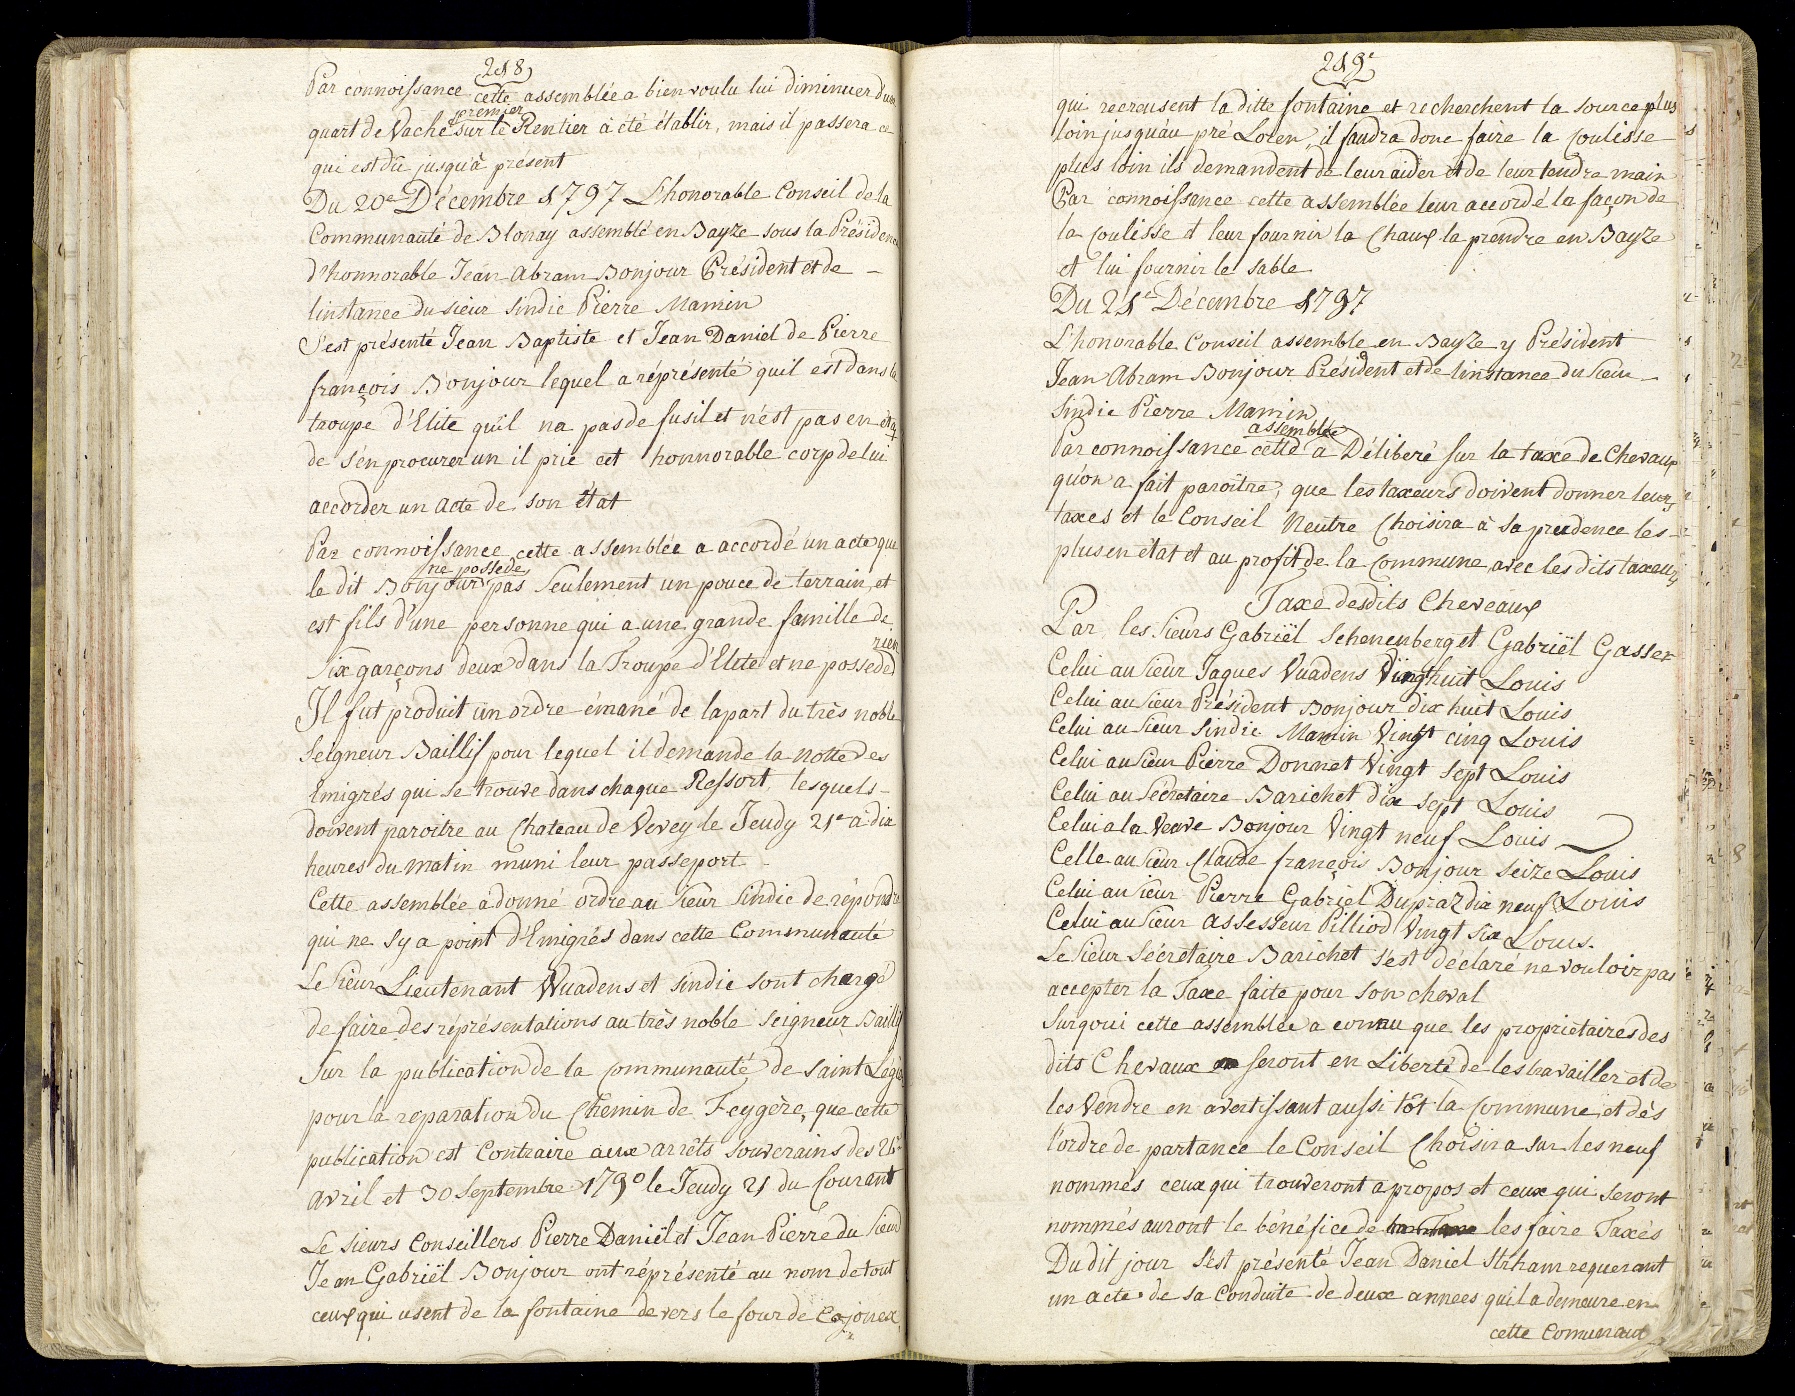 218
Par connoissance cette assemblée a bien voulu lui diminuer d'un
premier
quart de Vache sur le Rentier à été établir, mais il passera ce
qui est dû jusqu'à présent
Du 20e Décembre 1797 L'honorable Conseil de la
Communauté de Blonay assemblé en Bayze sous la Présidence
d'honnorable Jean Abram Bonjour Président et de
linstance du sieur Sindic Pierre Mamin
S'est présenté Jean Baptiste et Jean Daniel de Pierre
françois Bonjour lequel a réprésenté quil est dans la
troupe d'Elite qu'il na pas de fusil et n'est pas en état
de s'en procurer un il prie cet honnorable corp de lui
accorder un acte de son état
Par connoissance cette assemblée a accordé un acte que
ne possede
le dit Bonjour pas Seulement un pouce de terrain, et
est fils d'une personne qui a une grande famille de
rien
Six garçons deux dans la Troupe d'Elite et ne possede
Il fut produit un ordre émané de la part du très noble
Seigneur Baillif pour lequel il demande la notte des
Emigrés qui se trouve dans chaque Ressort, lesquels
doivent paroitre au Chateau de Vevey le Jeudy 21e à dix
heures du matin muni leur passeport
Cette assemblée à donné ordre au Sieur Sindic de répondre
qui ne Sy a point d'Emigrés dans cette Communauté
Le Sieur Lieutenant Vuadens et Sindic sont chargé
de faire des réprésentations au très noble Seigneur Baillif
Sur la publication de la Communauté de Saint Légier
pour la reparation du Chemin de Feygère, que cette
publication est Contraire aux arrêts souverains des 21e
avril et 30 Septembre 1790 le Jeudy 21 du Courant
Le Sieurs Conseillers Pierre Daniël et Jean Pierre du Sieur
Jean Gabriël Bonjour ont réprésenté au nom de tout
ceux qui usent de la fontaine de vers le four de Cojonex,
219e
qui recreusent la ditte fontaine et recherchent la source plus
loin jusqu'au pré Loren, il faudra donc faire la coulisse
plus loin ils demandent de leur aider et de leur tendre main
Par connoissance cette assemblée leur accordé la façon de
la coulisse et leur fournir la Chaux la prendre en Bayze
et lui fournir le sable
Du 21e Décembre 1797
L'honorable Conseil assemble en Bayze y Président
Jean Abram Bonjour Président et de linstance du Sieur
Sindic Pierre Mamin
assemblée
Par connoissance cette a Déliberé sur la taxe de Chevaux
qu'on a fait paroître, que les taxeurs doivent donner leurs
taxes et le Conseil Neutre Choisira à sa prudence les
plus en état et au profit de la commune avec les dits taxeurs
Taxe desdits Cheveaux
Par les Sieurs Gabriël Schenenberg et Gabriël Gasser
Celui au Sieur Jaques Vuadens Vingthuit Louis
Celui au Sieur Président Bonjour dix huit Louis
Celui au Sieur Sindic Mamin Vingt cinq Louis
Celui au Sieur Pierre Donnet Vingt sept Louis
Celui au Sécretaire Barichet dix sept Louis
Celui a la Veuve Bonjour Vingt neuf Louis
Celle au Sieur Claude françois Bonjour seize Louis
Celui au Sieur Pierre Gabriel Dupraz dix neuf Louis
Celui au Sieur Assesseur Pilliod Vingt six Louis.
Le Sieur Sécrétaire Barichet s'est déclaré ne vouloir pas
accepter la Taxe faite pour son cheval
Surqoui cette assemblée a connu que les propriétaires des
dits Chevaux seront en Liberté de les travailler et de
les Vendre en avertissant aussi tôt la commune, et dès
l'ordre de partance le Conseil Choisira sur les neuf
nommés ceux qui trouveront a propos et ceux qui seront
nommés auront le bénéfice de les faire Taxés
Du dit jour s'est présenté Jean Daniel Strham requerant
un acte de sa Conduite de deux annees quil a demeure en
cette Comunaut